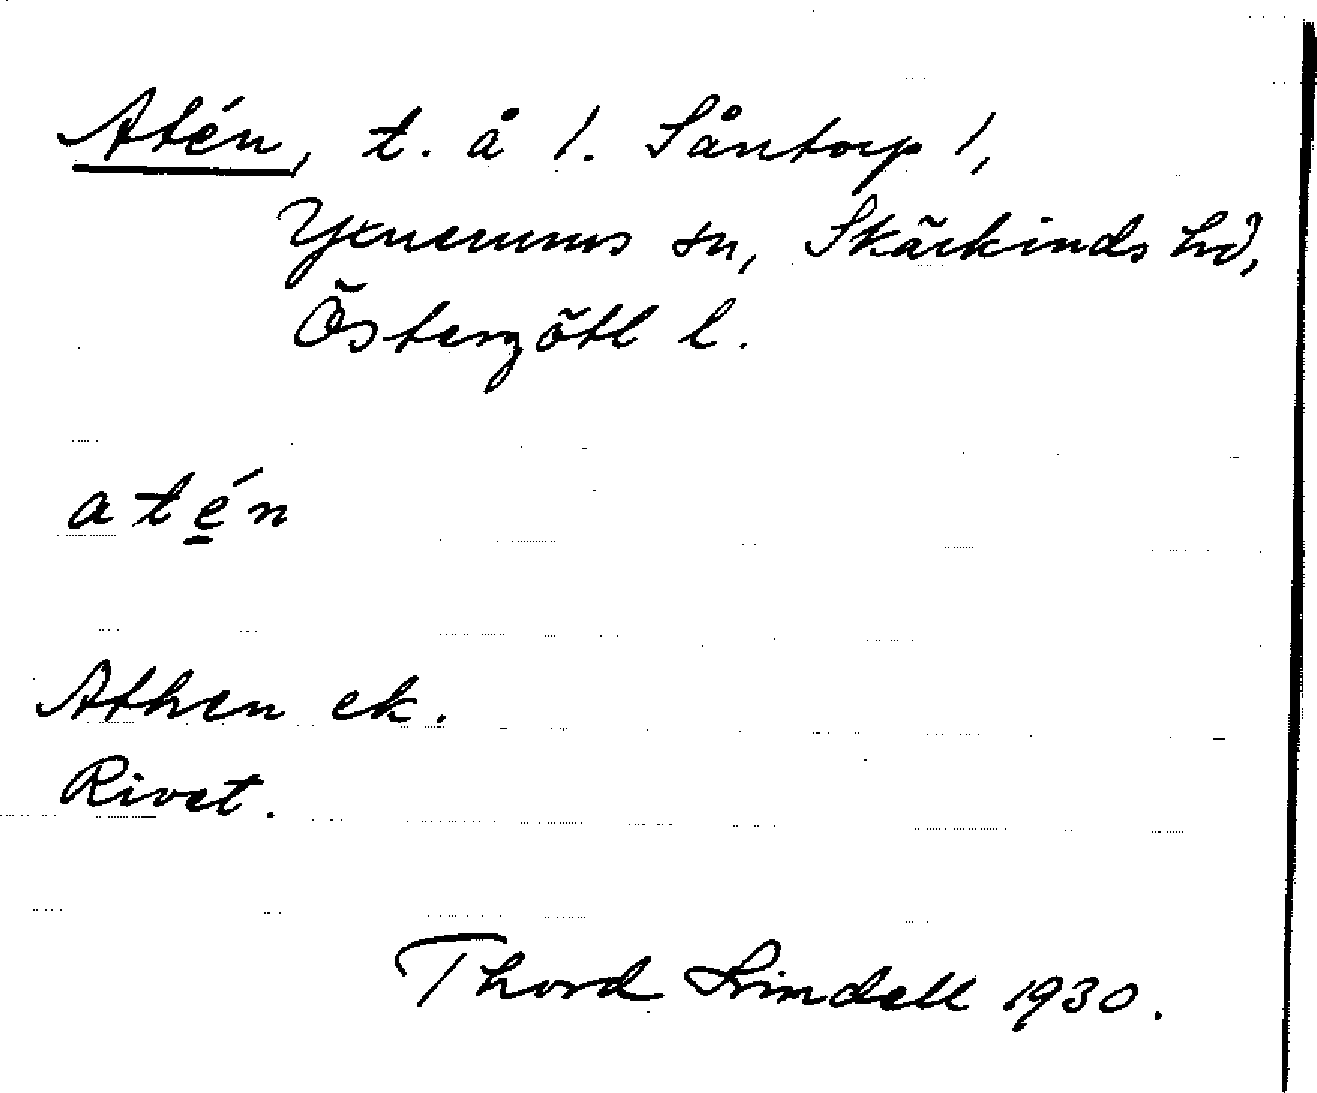 Atén, t. å /. Såntorp /,
Yxnerums sn, Skärkinds hd,
Östergötl l.
atén
Athen ek.
Rivet.
Thord Lindell 1930.